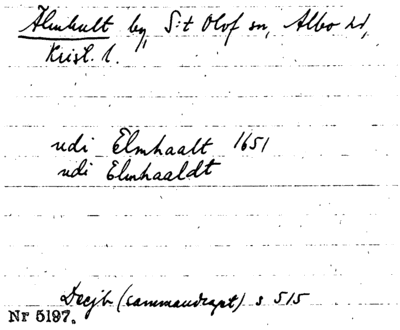 Älmhult by, S:t Olof sn, Albo hd,
Krist. l.
udi Elmhaalt 1651
udi Elmhaaldt
Decjb (sammandraget) s 515
Nr 5197.